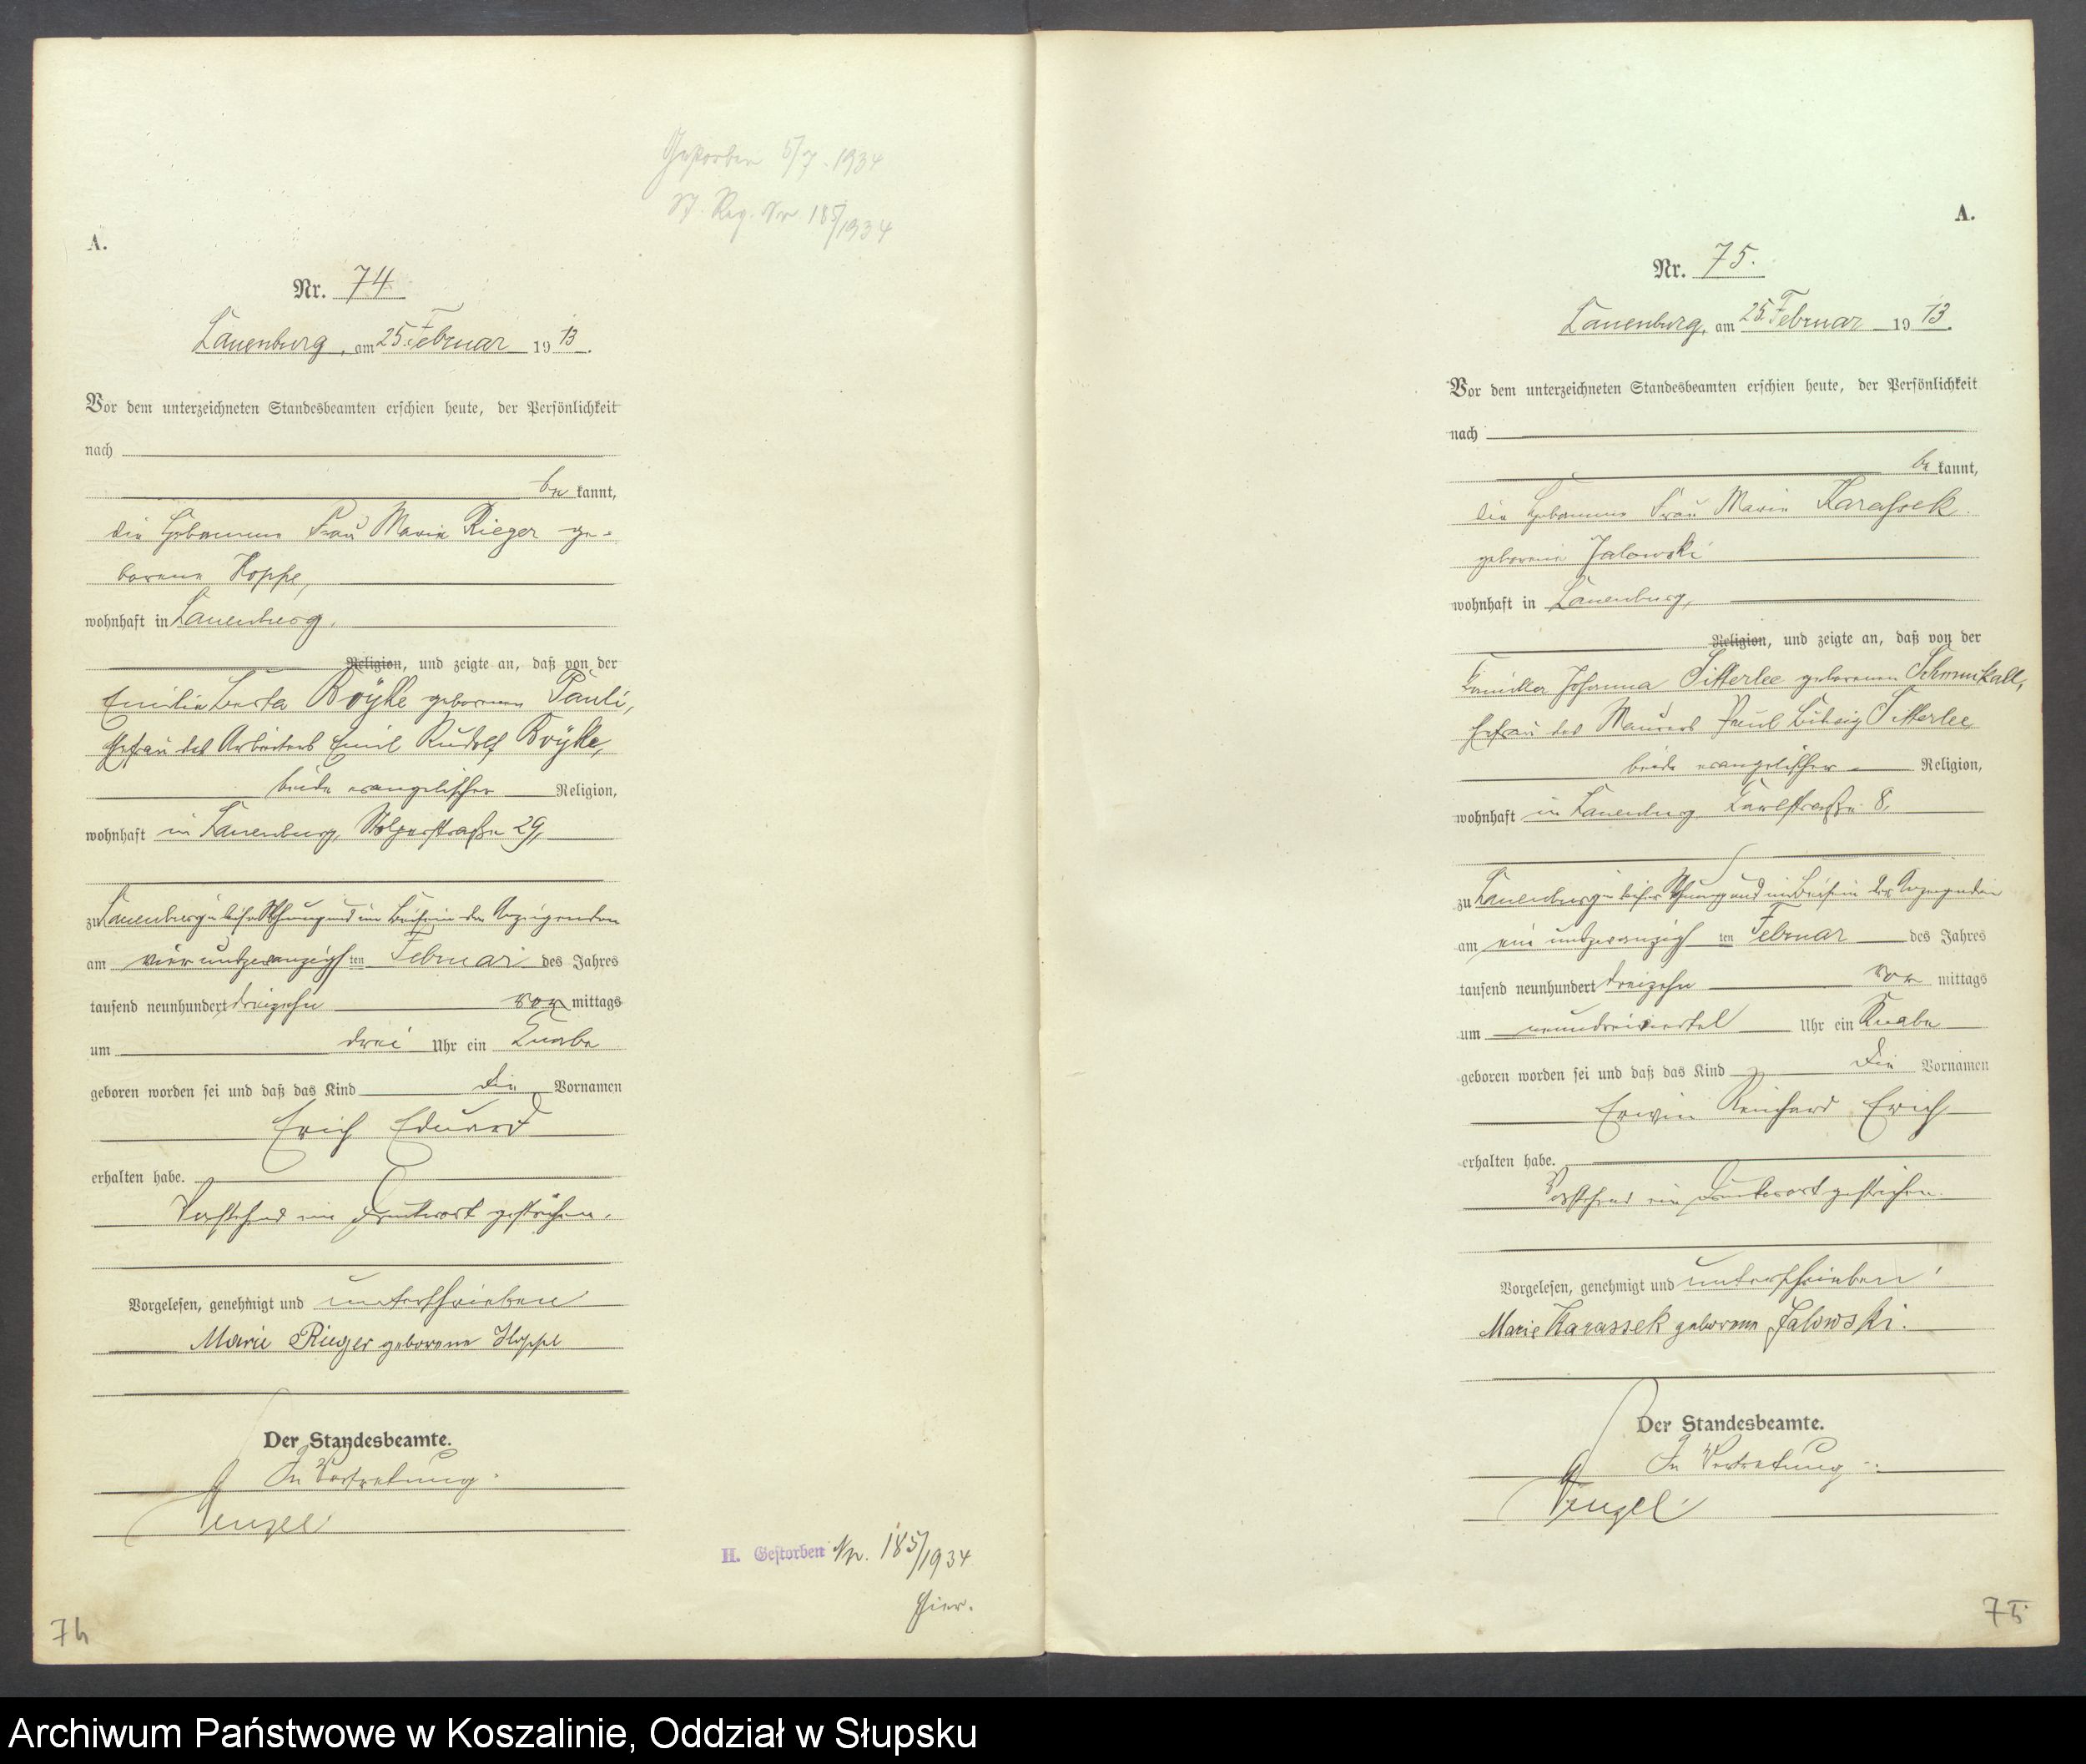 Gestorben 5/7. 1934
St. Reg. Nr. 185/1934
A.
Nr. 74
Lauenburg, am 25. Februar 1913.
Vor dem unterzeichneten Standesbeamten erschien heute, der Persönlichkeit
nach
be kannt,
die Hebamme Frau Marie Rieger ge-
borene Hoppe,
wohnhaft in Lauenburg,
Religion, und zeigte an, daß von der
Emilie Berta geborenen Pauli,
Ehefrau des Arbeiters Emil Rudolf
beide evangelischer Religion,
wohnhaft in Lauenburg, Stolperstraße 29,
zu Lauenburg in dieser Wohnung und im Beisein der Anzeigenden
am vierundzwanzigsten Februar des Jahres
tausend neunhundert dreizehn vor mittags
um drei Uhr ein Knabe
geboren worden sei und daß das Kind die Vornamen
Erich Eduard
erhalten habe.
Vorstehend ein Druckwort gestrichen.
Vorgelesen, genehmigt und unterschrieben
Marie Rieger geborene Hoppe
Der Standesbeamte.
In Vertretung.
H. Gestorben Nr. 185/1934
hier.
74
A.
Nr. 75.
Lauenburg, am 25. Februar 1913.
Vor dem unterzeichneten Standesbeamten erschien heute, der Persönlichkeit
nach
be kannt,
die Hebamme Frau Marie Karassek
geborene Jalowski
wohnhaft in Lauenburg,
Religion, und zeigte an, daß von der
Johanna geborenen
Ehefrau des Maurers Paul
beide evangelischer Religion,
wohnhaft in Lauenburg Karlstraße 8,
zu Lauenburg in dieser Wohnung und im Beisein der Anzeigenden
am ein undzwanzigsten Februar des Jahres
tausend neunhundert dreizehn vor mittags
um neundreiviertel Uhr ein Knabe
geboren worden sei und daß das Kind die Vornamen
Erwin Reinhard Erich
erhalten habe.
Vorstehend ein Druckwort gestrichen.
Vorgelesen, genehmigt und unterschrieben
Marie Karassek geborene Jalowski.
Der Standesbeamte.
In Vertretung.
75
Archiwum Państwowe w Koszalinie, Oddział w Słupsku